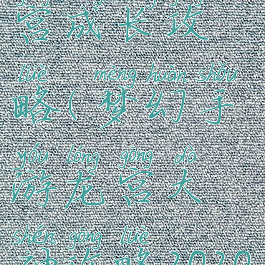 宫成长攻
lüè mèng huàn shǒu
略(梦幻手
yóu lóng gōng dà
游龙宫大
shén gōng lüè
神攻略2020